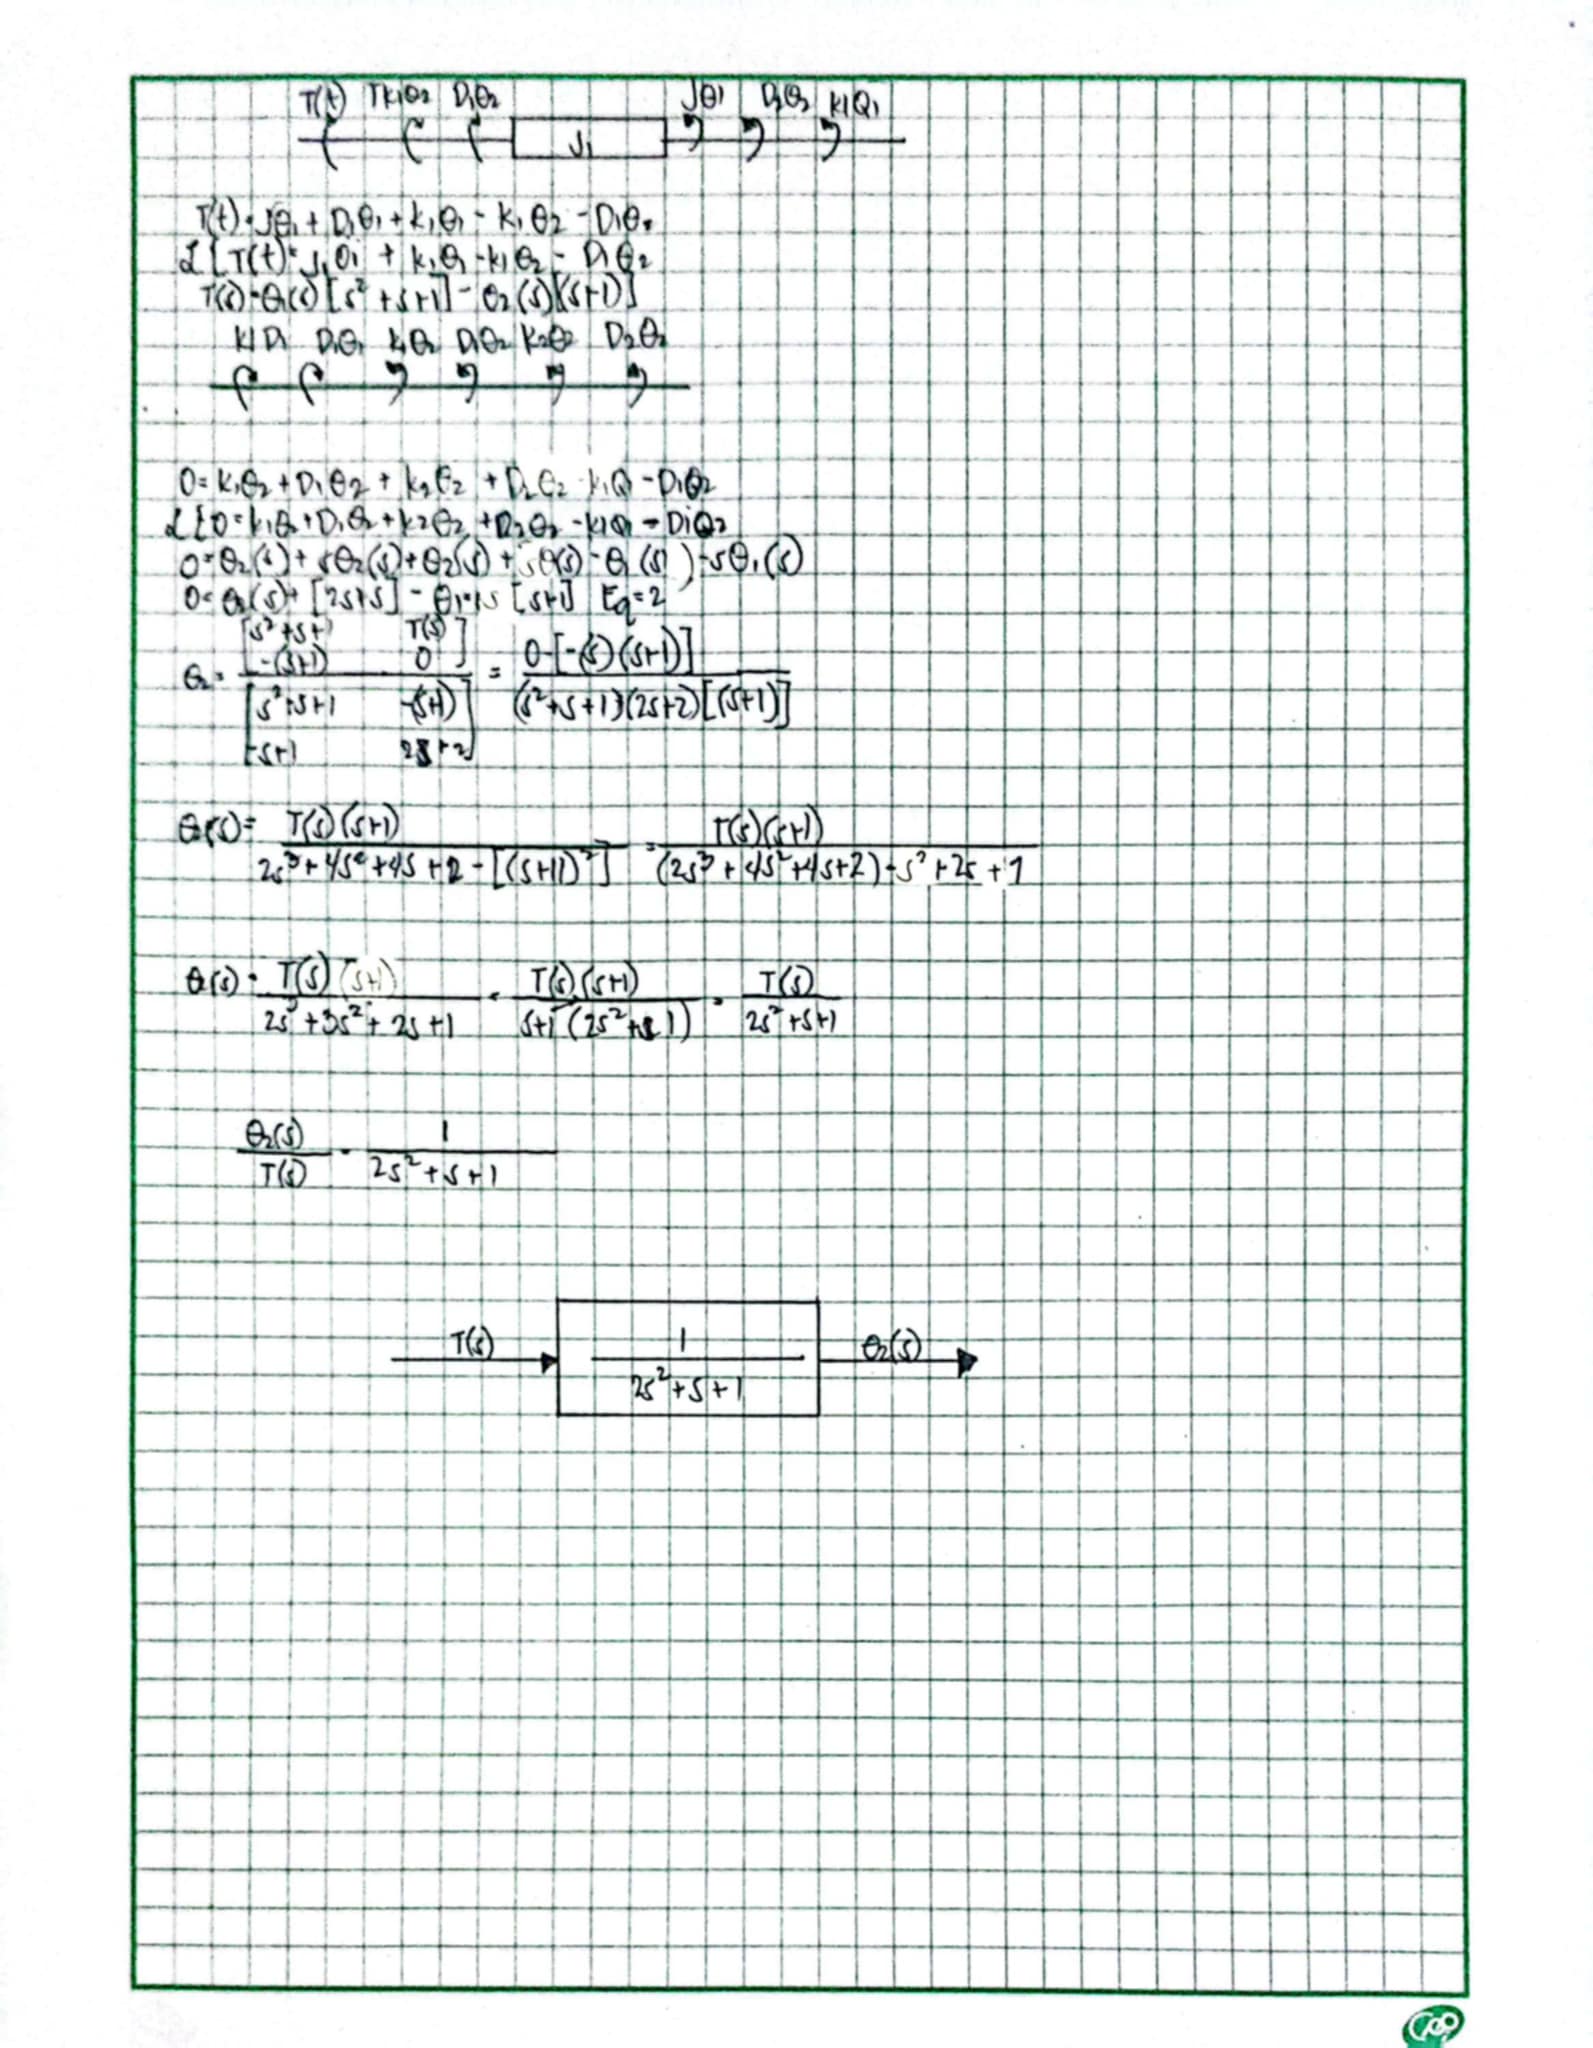 T(t) Tk₁θ₂ D₁θ₂ J₁ Jθ1 D₂θ₂ k1Q₁
T(t)=Jθ₁ + D₁θ₁ + k₁θ₁ - k₁θ₂ - D₁θ₂
L{T(t)=J₁θ₁ + k₁θ₁ - k₁θ₂ - D₁θ₂
T(s)=θ₁(s)[s²+s+1] - θ₂(s)[(s+1)]
k1D₁ D₁θ₁ k₁θ₂ D₁θ₂ k₂θ₂ D₂θ₂
0= k₁θ₂ + D₁θ₂ + k₂θ₂ + D₂θ₂ - k₁Q₁ - D₁Q₂
L{0=k₁θ₂+D₁θ₂+k2θ₂+D₂θ₂-k1Q₁ - D₁Q₂
0=θ₂(s)+ sθ₂(s)+θ₂(s)+sθ(s)-θ₁(s))-sθ₁(s)
0= θ₂(s)+[2s+s] - θ₁ [s+1] Eq=2
θ₂= [s²+s+1 T(s) -(s+1) 0] / [s²+s+1 -(s+1) -s+1 2s+2] = 0-[-(s)(s+1)] / (s²+s+1)(2s+2)[(s+1)]
θ₂(s)= T(s)(s+1) / 2s³+4s²+4s+2-[(s+1)²] = T(s)(s+1) / (2s³+4s²+4s+2)-s²+2s+1
θ₂(s)= T(s)(s+1) / 2s³+3s²+2s+1 = T(s)(s+1) / s+1(2s²+s 1) = T(s) / 2s²+s+1
θ₂(s) / T(s) = 1 / 2s²+s+1
T(s) 1 / 2s²+s+1 θ₂(s)